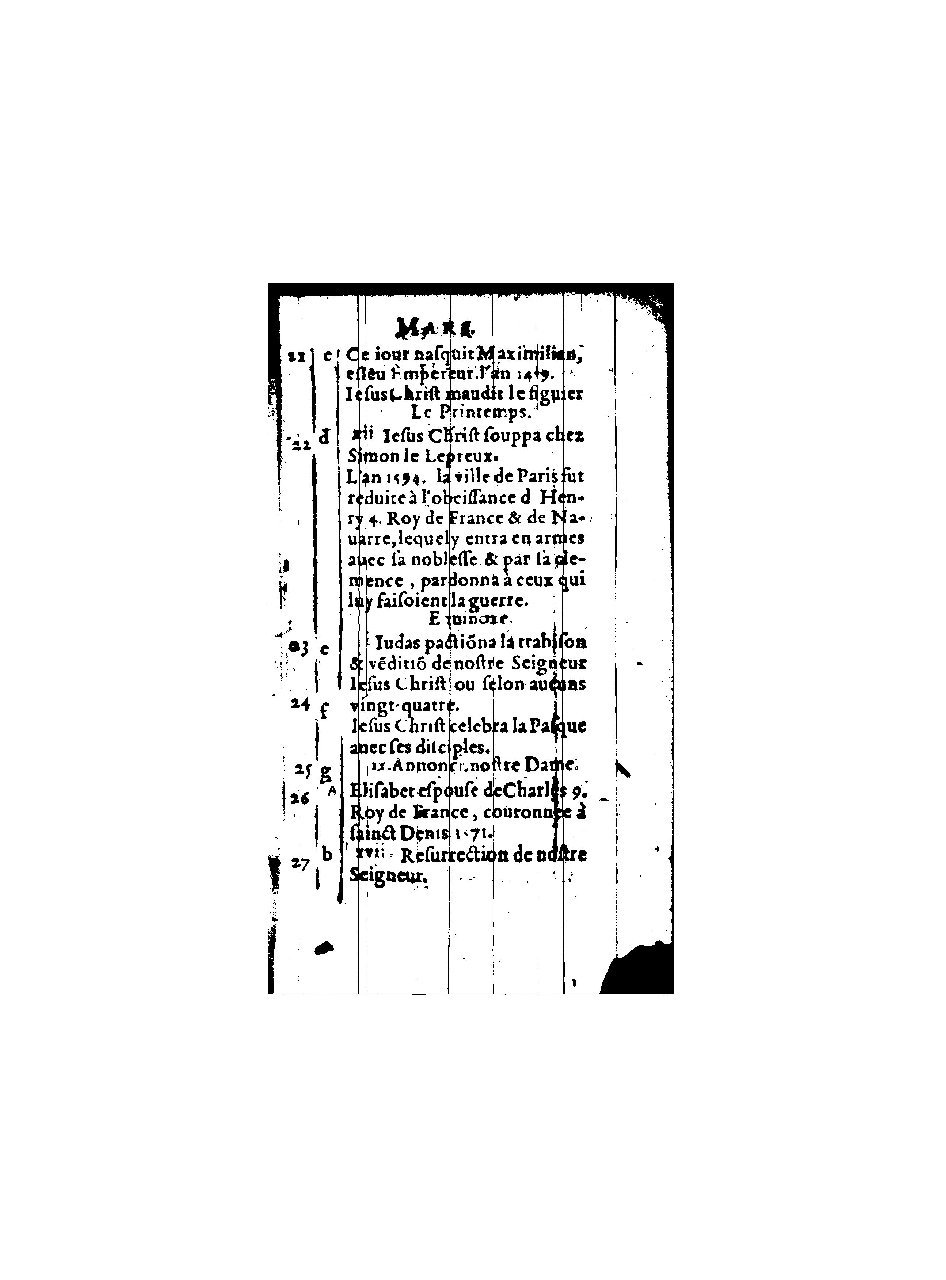 MARS.
21 c Ce iour naſquit Maximilian,
eſleu Empereur l'an 1459.
Ieſus Chriſt maudit le figuier
Le Printemps.
22 d xii Ieſus Chriſt ſouppa chez
Simon le Lepreux.
L'an 1594. la ville de Paris fut
reduite à l'obeiſſance d Hen-
ry 4. Roy de France & de Na-
uarre, lequel y entra en armes
auec ſa nobleſſe & par ſa cle-
mence, pardonna à ceux qui
luy faiſoient la guerre.
Equinoxe.
23 e Iudas pactiõna la trahiſon
& vẽditiõ de noſtre Seigneur
Ieſus Chriſt ou ſelon aucuns
24 f vingt-quatre.
Ieſus Chriſt celebra la Paſque
auec ſes diſciples.
25 g ix. Annonc. noſtre Dame.
26 A Eliſabet eſpouſe de Charles 9.
Roy de France, couronnee à
ſainct Denis 1571.
27 b xvii Reſurrection de noſtre
Seigneur.